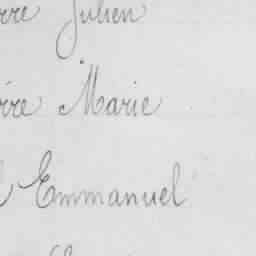 rre Julien
rre Marie
Emmanuel